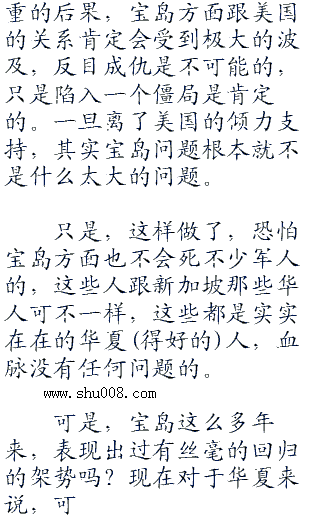 重的后果，宝岛方面跟美国
的关系肯定会受到极大的波
及，反目成仇是不可能的，
只是陷入一个僵局是肯定
的。一旦离了美国的倾力支
持，其实宝岛问题根本就不
是什么太大的问题。
只是，这样做了，恐怕
宝岛方面也不会死不少军人
的，这些人跟新加坡那些华
人可不一样，这些都是实实
在在的华夏(得好的)人，血
脉没有任何问题的。
www.shu008.com
可是，宝岛这么多年
来，表现出过有丝毫的回归
的架势吗？现在对于华夏来
说，可